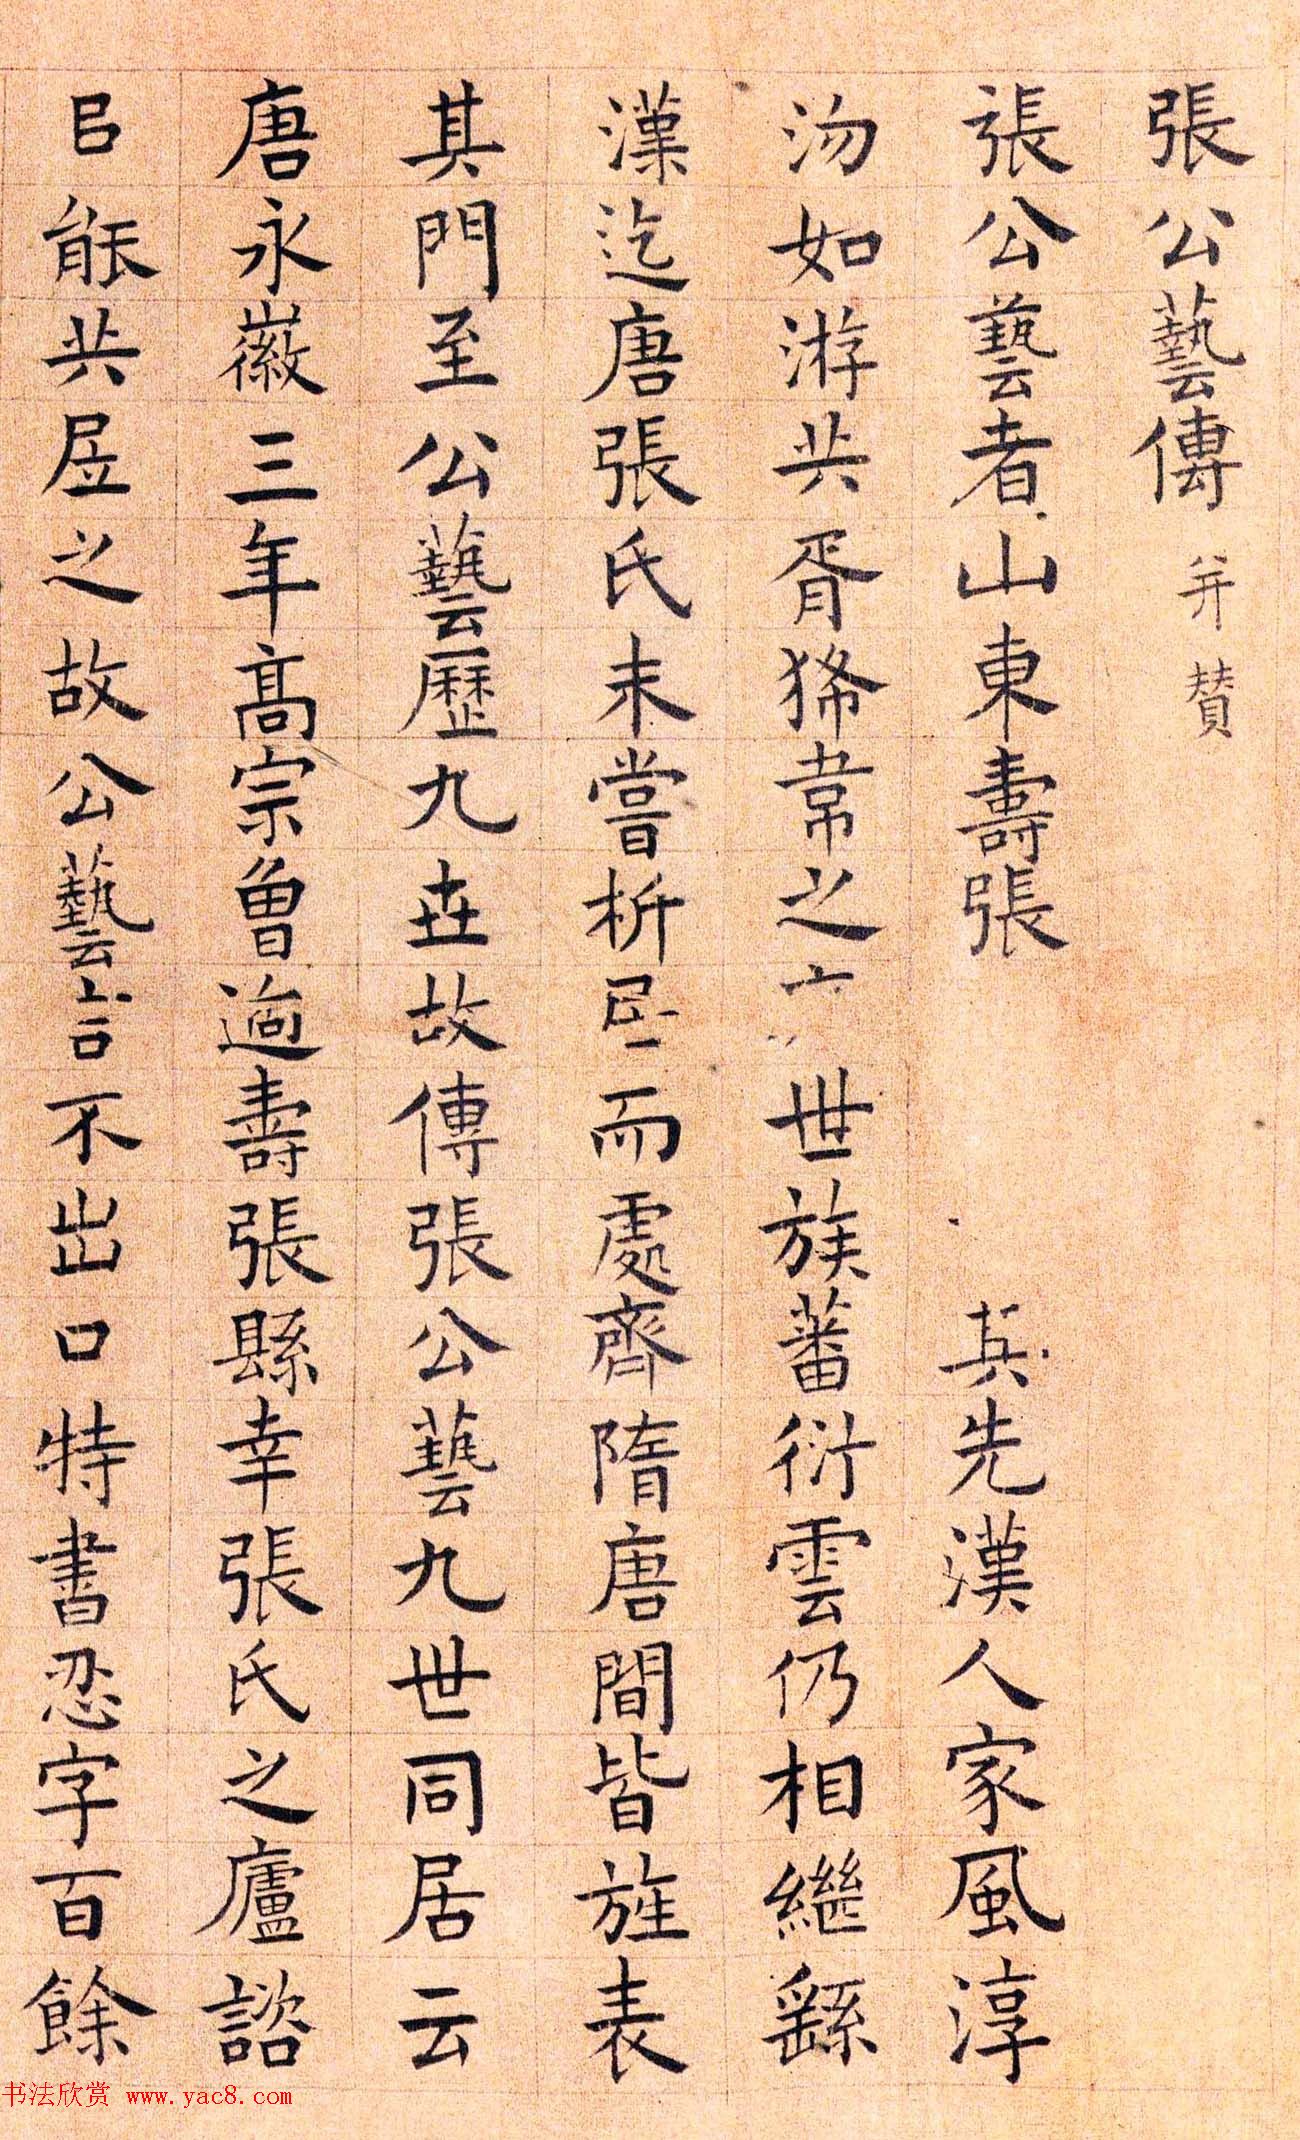 張公藝傳 并賛
張公藝者山東壽張 其先漢人家風淳
沕如游共胥狶韋之 世族蕃衍雲仍相繼繇
漢迄唐張氏未嘗析𡰥而處齊隋唐間皆旌表
其門至公藝歷九世故傳張公藝九世同居云
唐永徽三年高宗曾過壽張縣幸張氏之廬諮
㠯能共𡰥之故公藝言不出口特書忍字百餘
书法欣赏 www.yac8.com